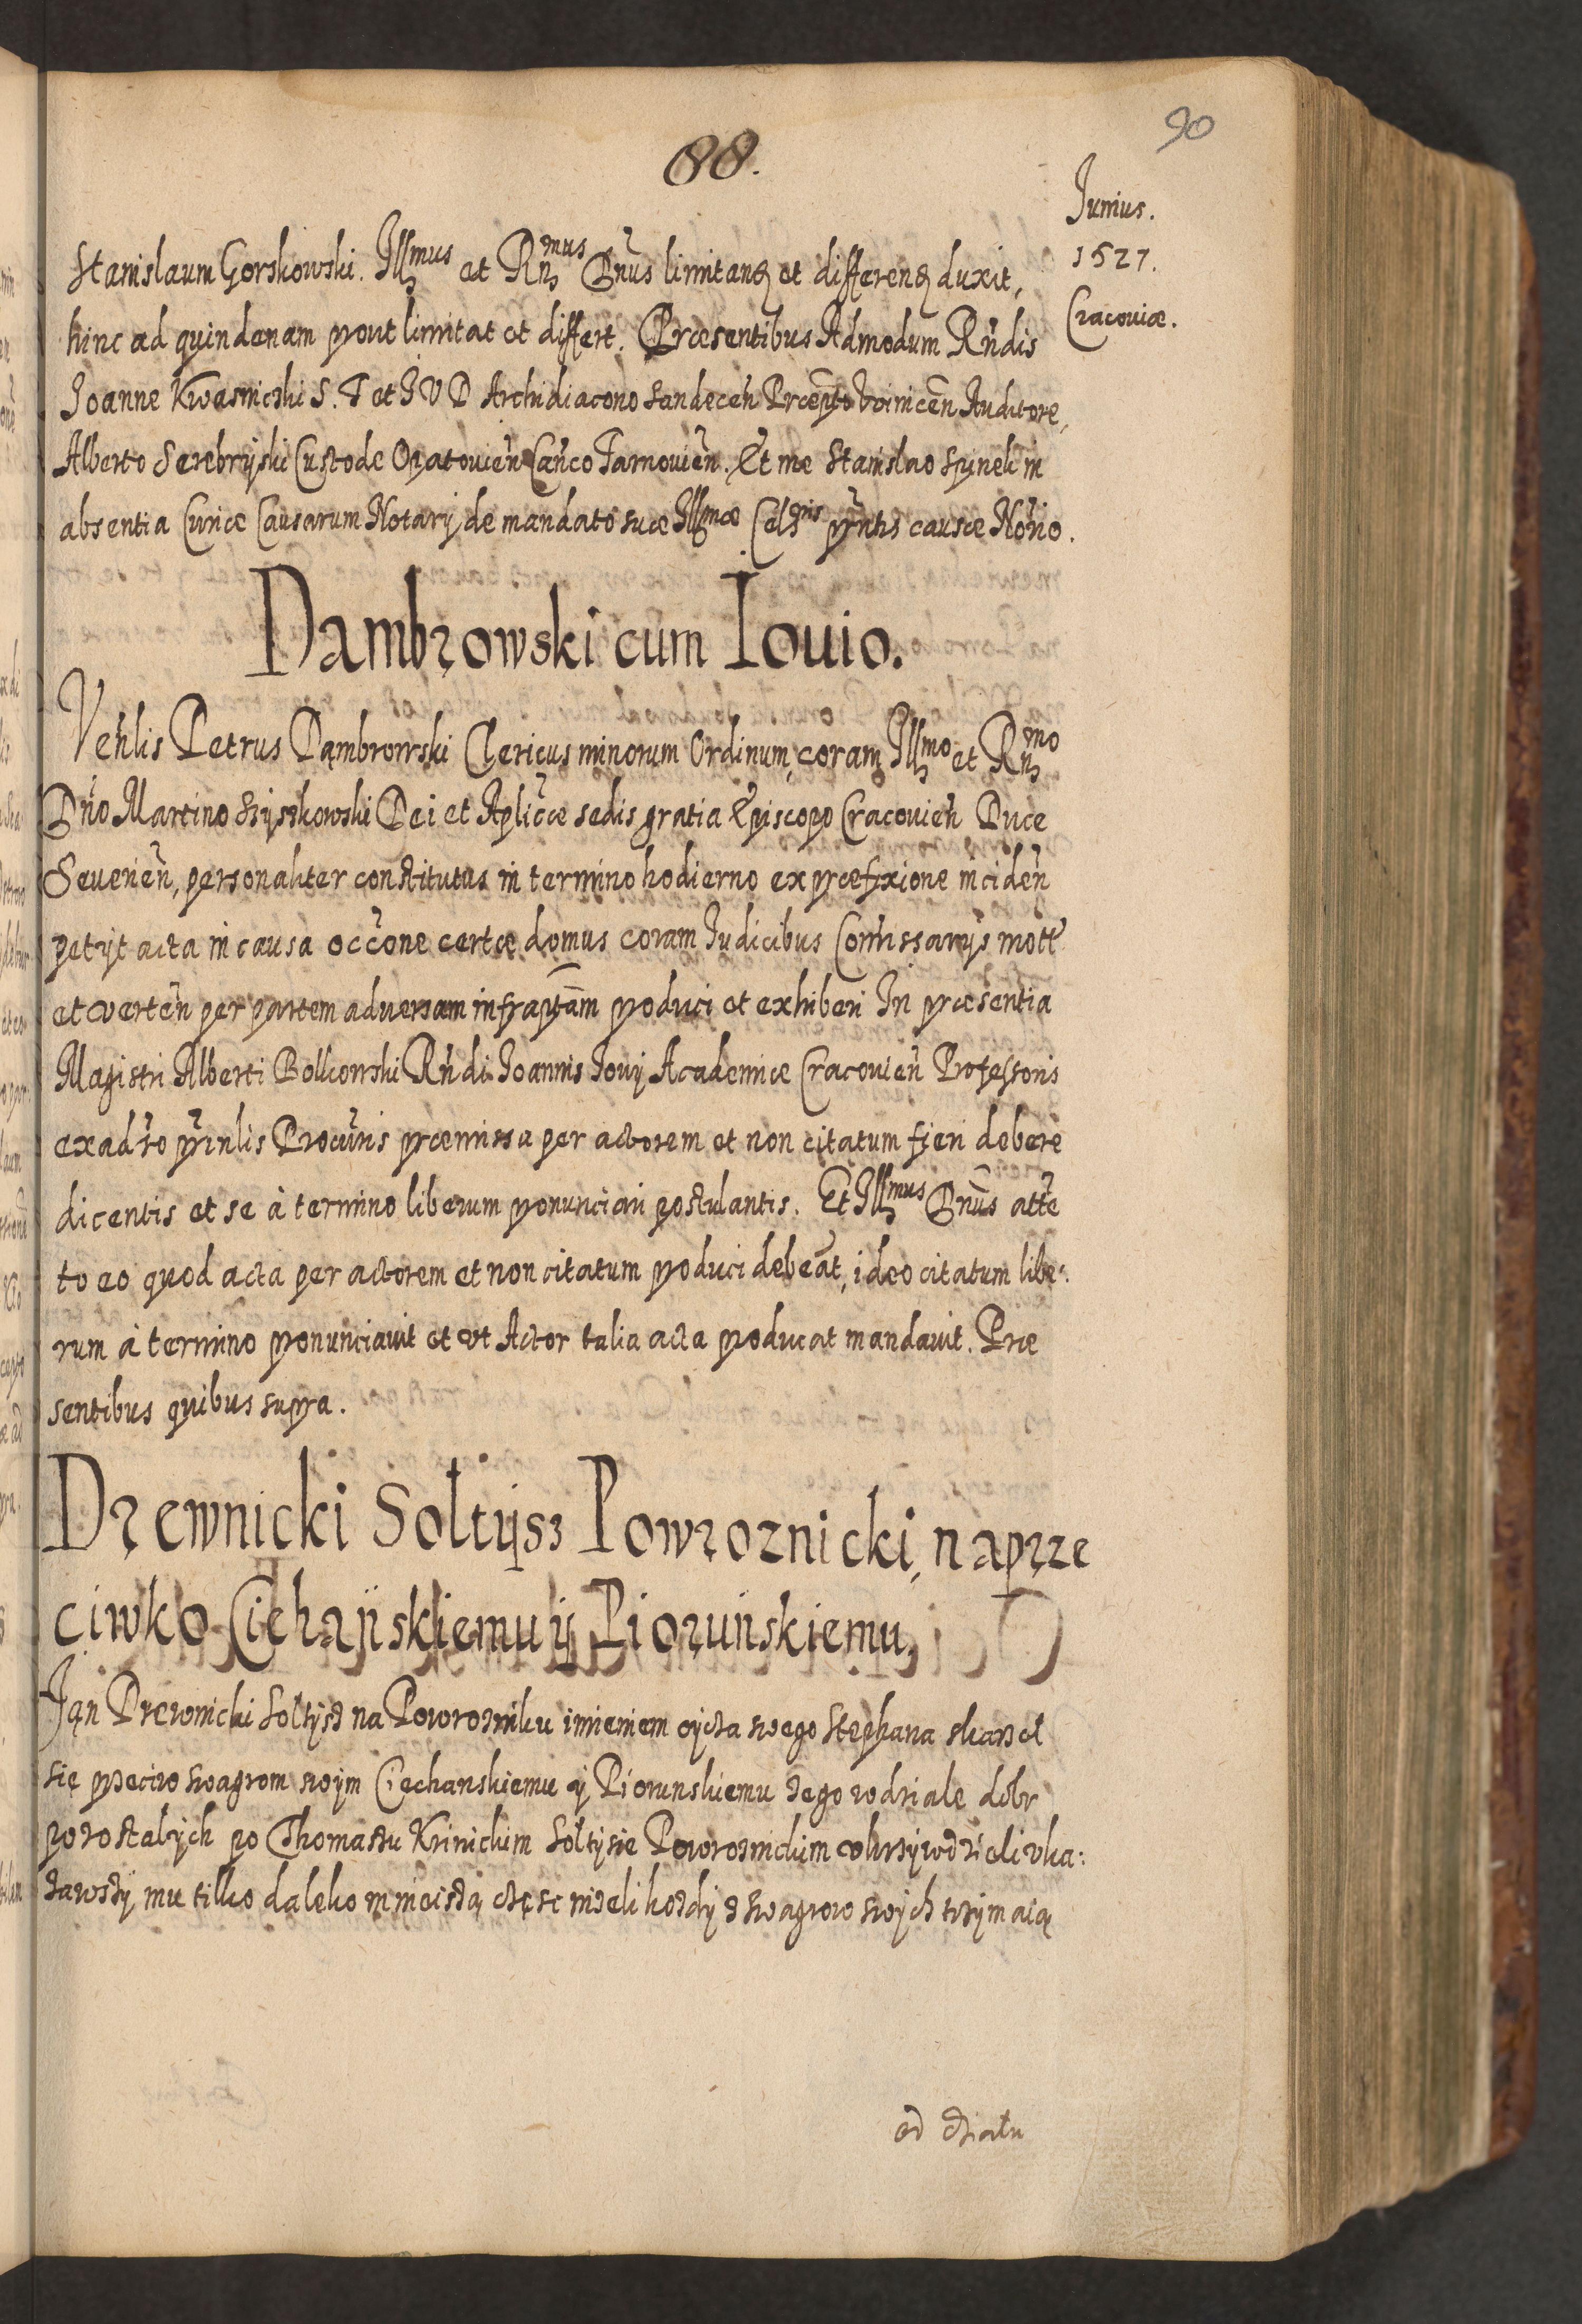 90
88.
Junius.
1627.
Cracoviæ.
Stanislaum Gorskowski. Illmus et Rnmus Dnus limitandę et differendę duxit,
hinc ad quindenam prout limitat et differt. Præsentibus Admodum Rndis
Joanne Kwasnicski S. T et J V D Archidiacono Sandecen Auditore,
Alberto Serebryski Custode Opatovien Canco Tarnovien. Et me Stanislao Spinek in
absentia Curiæ Causarum Notarij de mandato suæ Illmæ Celsnis pntis causæ Norio.
Dambrowski cum Iouio.
Venlis Petrus Dąmbrowski Clericus minorum Ordinum, coram Illmo et Rnmo
Dno Martino Szyszkowski Dei et Aplicæ sedis gratia Episcopo Cracovien Duce
Severien, personaliter constitutus in termino hodierno ex præfixione inciden
petijt acta in causa occone certæ domus coram Judicibus Comissarijs mott
et verten per partem adversam infraptam produci et exhiberi In præsentia
Magistri Alberti Bolkowski Rndi Joannis Jovij Academiæ Cracovien Professoris
ex adto prinlis Procuris præmissa per actorem et non citatum fieri debere
dicentis et se à termino liberum pronunciari postulantis. Et Illmus Dnus atte
to eo quod acta per actorem et non citatum produci debeat, ideo citatum libe:
rum à termino pronunciavit et vt Actor talia acta producat mandavit. Præ
sentibus quibus supra.
Drewnicki Sołtÿsz Powroznicki, naprze
ciwko Ciehąnskiemu ÿ Piorunskiemu,
Ján Drewnicki Sołtysz na Powrozniku imieniem oycza swego Stephana skarzeł
się przeciwo swagrom swym Ciechanskiemu y Piorunskiemu zego w dziale dobr
pozostałych po Thomaszu Krinickim Sołtysie Powroznickim vkrzywdzieli vka:
zawszy mu tilko daleko mnieiszą część nizeli kozdy z swagrow swych trzymaią
od działu